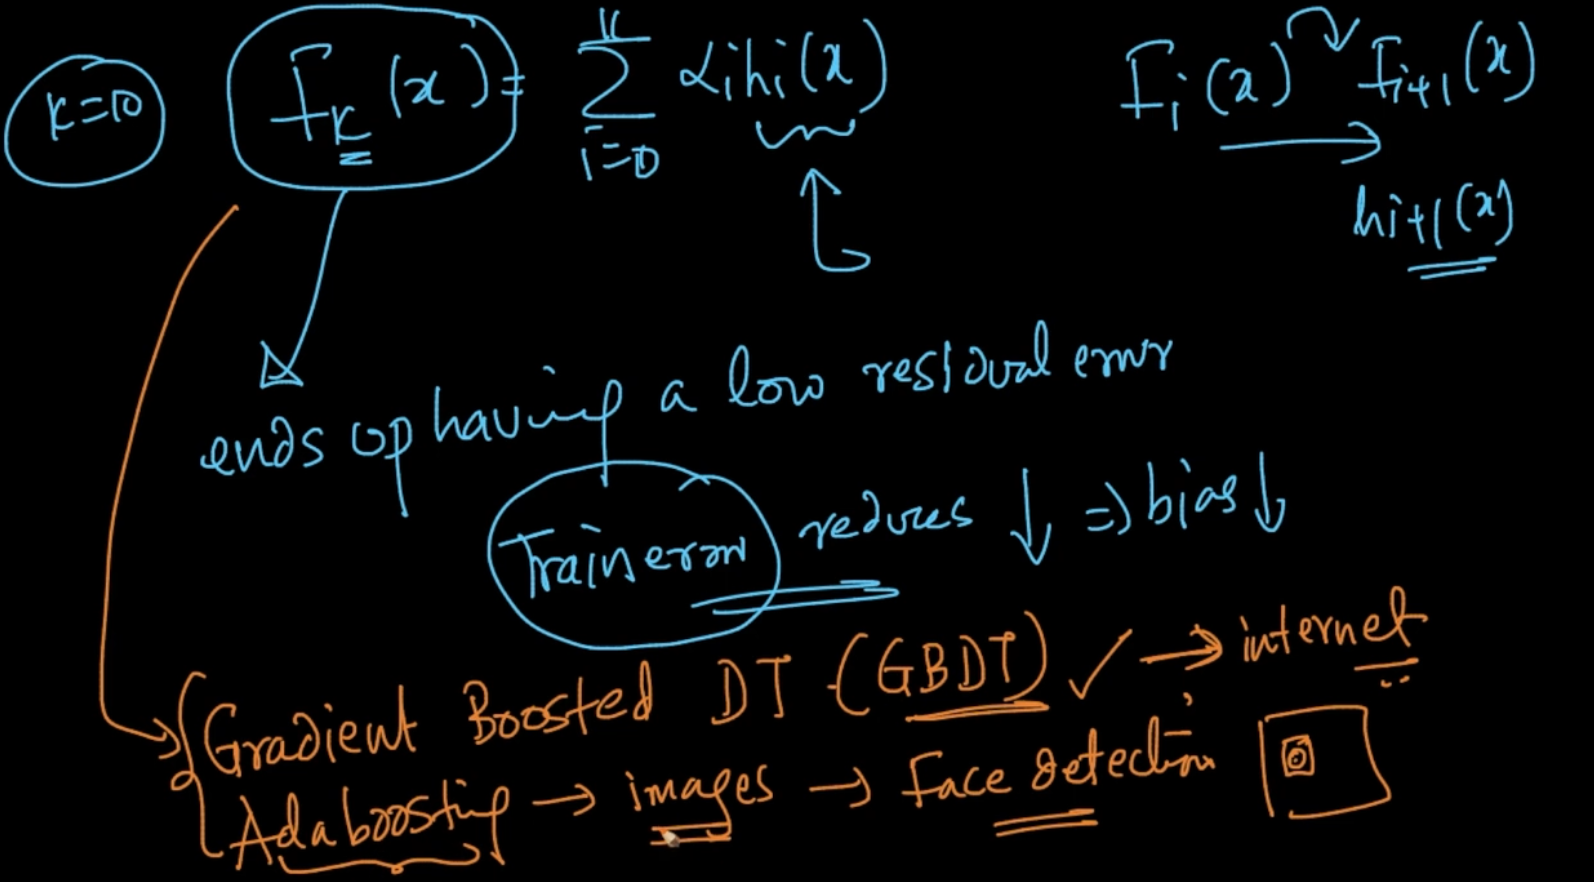 k=10
F_k(x) = Σ_{i=0}^{k} α_i h_i(x)
F_i(x) → F_{i+1}(x)
h_{i+1}(x)
ends up having a low residual error
Train error reduces ↓ ⇒ bias ↓
Gradient Boosted DT (GBDT) ✓ → internet
Adaboosting → images → Face detection